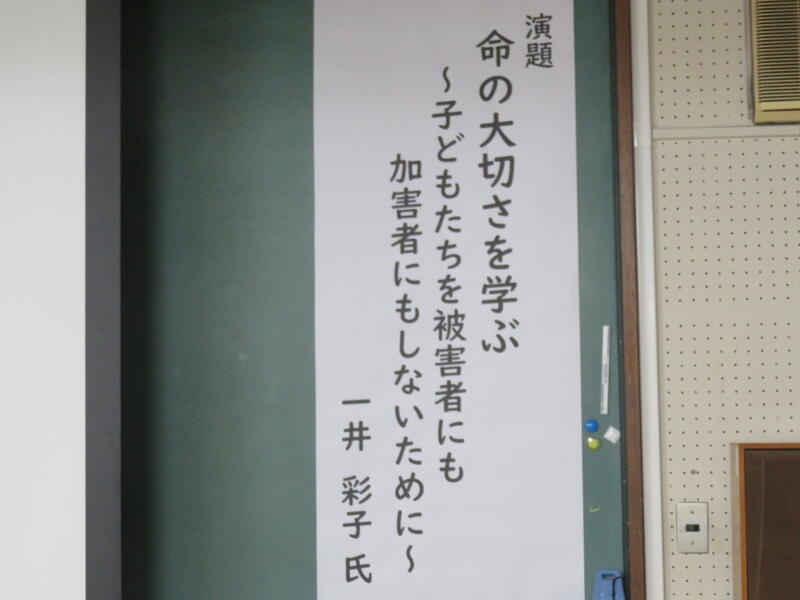 演題
命の大切さを学ぶ
～子どもたちを被害者にも
加害者にもしないために～
一井 彩子 氏